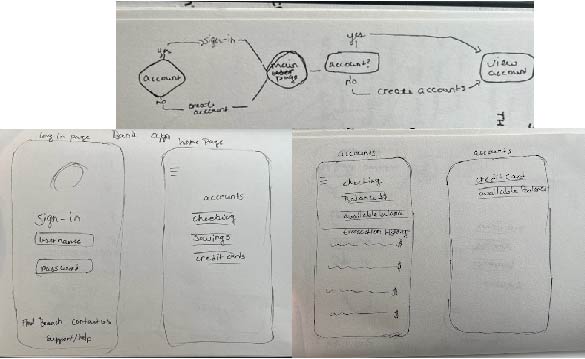 yes
sign-in
account
no
create
account
main
page
yes
account?
no
create accounts
view
account
log in page
Bank app
home page
Sign-in
username
password
Find Branch contact us
Support/help
accounts
checking
Savings
credit cards
accounts
checking
Balance $
available balance
transaction history
$
$
$
$
accounts
credit card
available balance